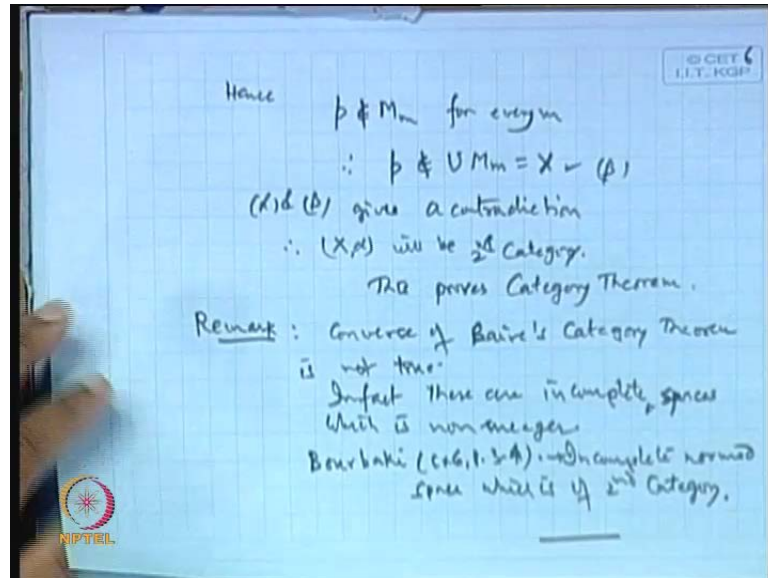 © CET 6
I.I.T. KGP
Hence p ∉ Mm for every m
∴ p ∉ ∪ Mm = X – (β)
(α) & (β) gives a contradiction
∴ (X,d) will be 2nd Category.
This proves Category Theorem.
Remark : Converse of Baire's Category Theorem
is not true.
Infact there are incomplete spaces
which is nonmeager
Bourbaki ( Incomplete normed
space which is of 2nd Category.
NPTEL